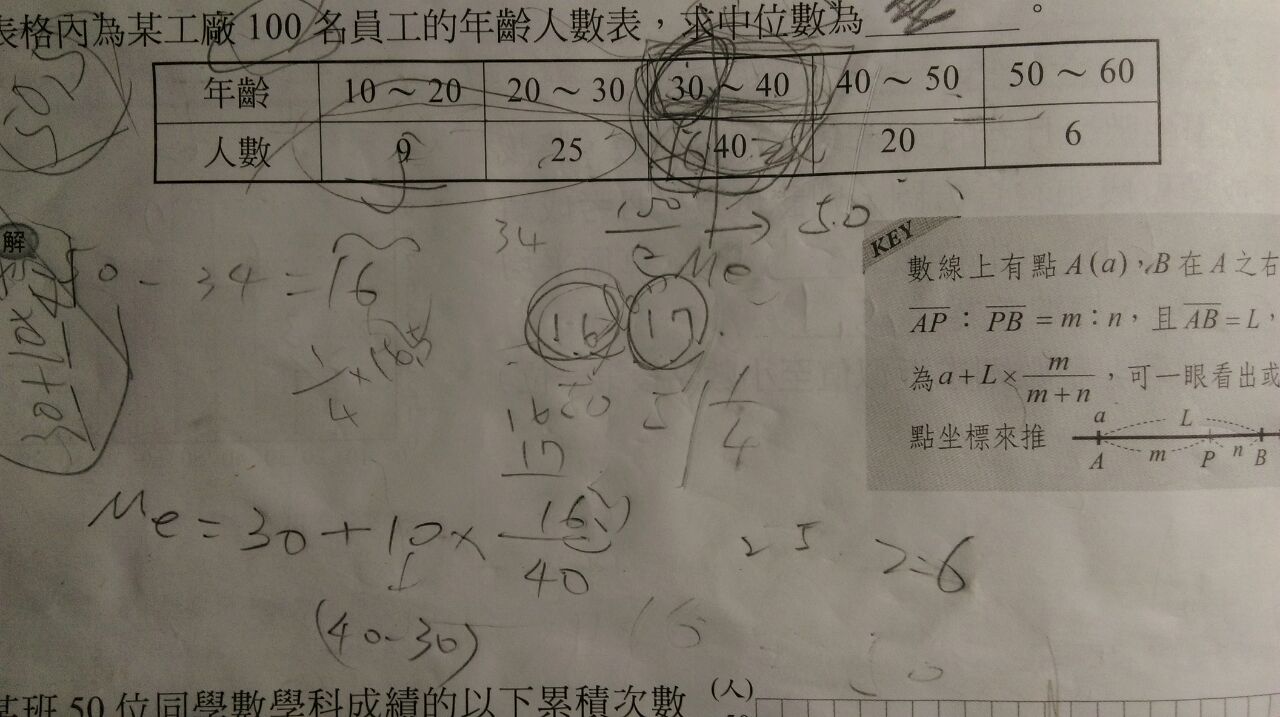 表格內為某工廠 100 名員工的年齡人數表，求中位數為________。
年齡 10～20 20～30 30～40 40～50 50～60
人數 9 25 40 20 6
50.5
34 100 → 50
Me
解
50 - 34 = 16
16 17
1/4 × 16.5
16
17
1/4
Me = 30 + 10 × 16 / 40
(40-30)
25
KEY
數線上有點 A(a)，B 在 A 之右
AP：PB = m：n，且 AB = L，
為 a + L × m/(m+n)，可一眼看出或
點坐標來推
a L
A m P n B
某班 50 位同學數學科成績的以下累積次數
(人)